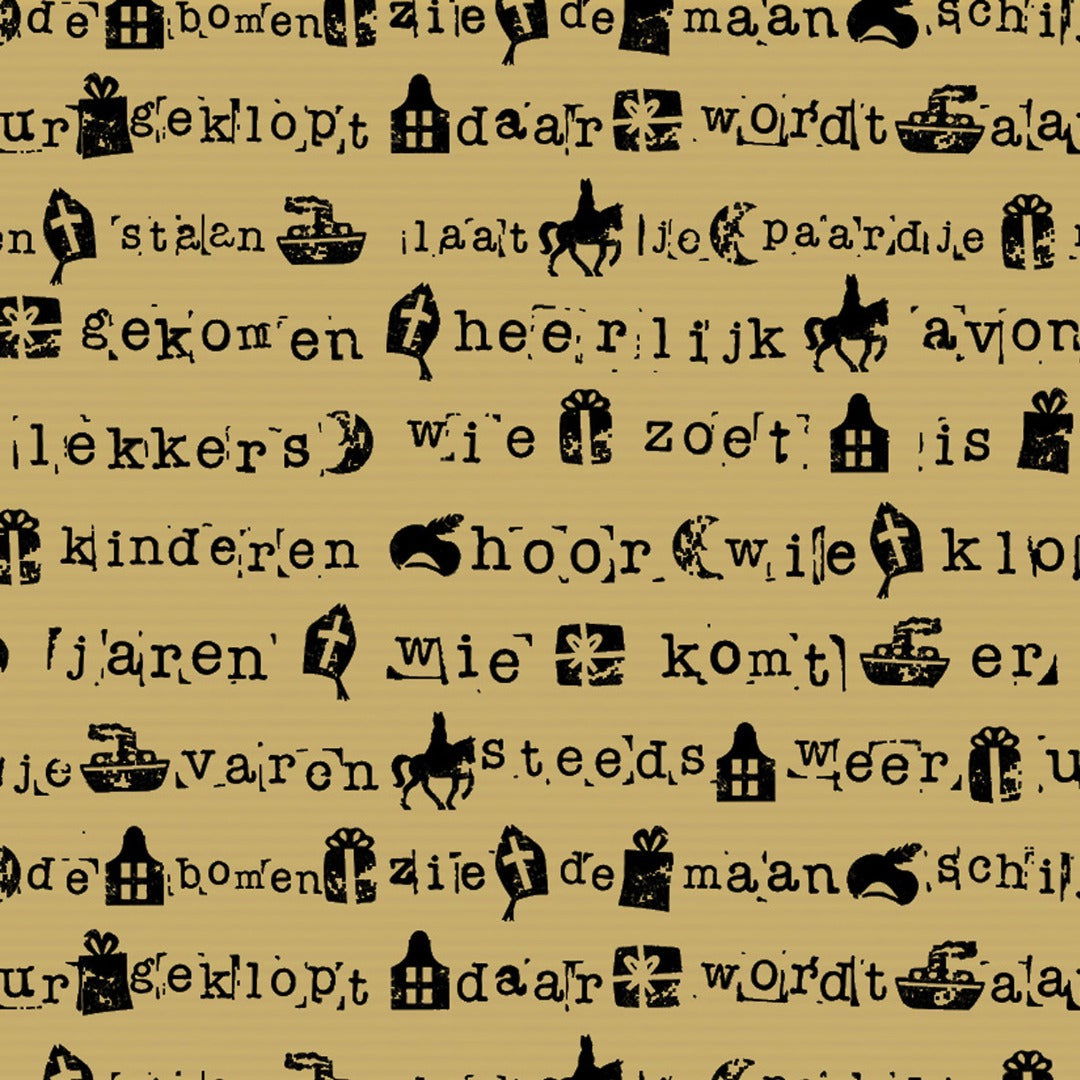 de bomen zie de maan schi
ur geklopt daar wordt aa
en staan laat je paardje
gekomen heerlijk avon
lekkers wie zoet is
kinderen hoor wie klo
jaren wie komt er
je varen steeds weer u
de bomen zie de maan schi
ur geklopt daar wordt aa